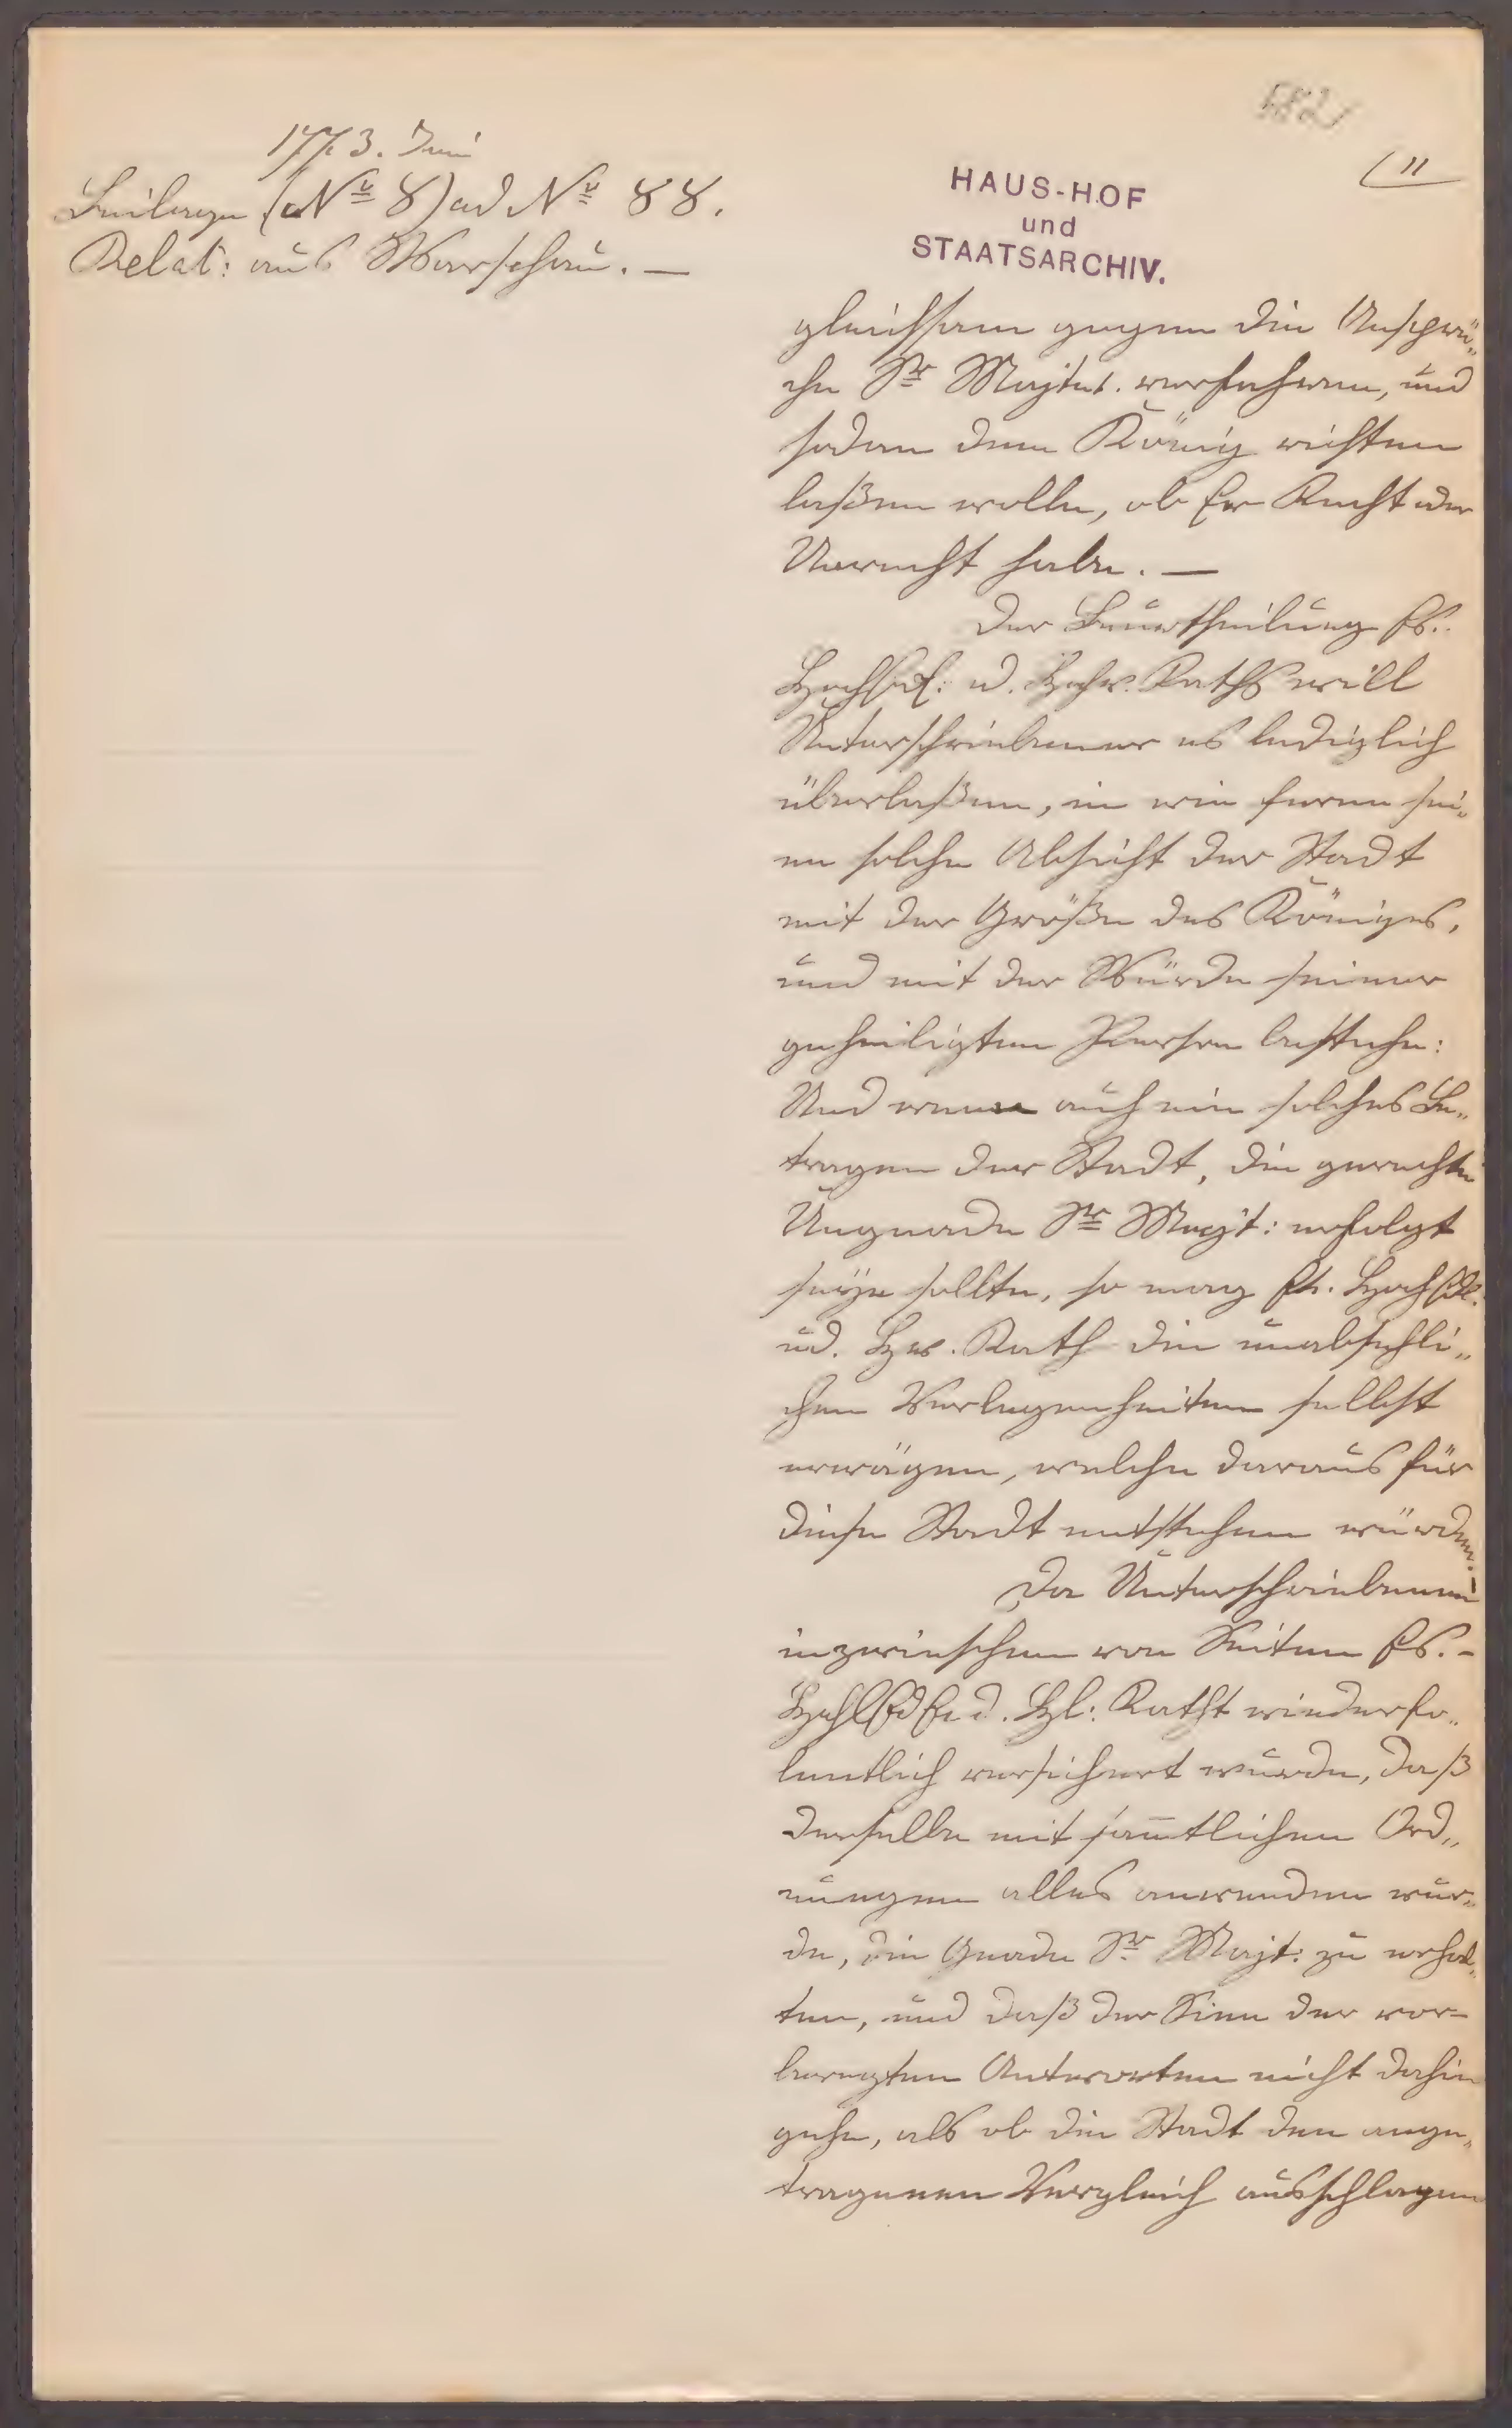 582
1773. Juni
(11
Beilage (N° 8) ad N° 88.
Relat: aus Warschau. —
HAUS-HOF
und
STAATSARCHIV.
gleichsam gegen die Ansprü„
che Sr Majtet. verfahren, und
sodan dem König richten
laßen wolle, ob Er Recht oder
Unrecht habe. —
Der Beurtheilung Es.
u. Raths will
Unterschriebener es lediglich
überlaßen, in wie ferne sei„
ne solche Absicht der Stadt
mit der Größe des Königes,
und mit der Würde seiner
geheiligten Person bestehe:
Und wenn auf ein solches Be„
tragen der Stadt, die gerechte
Ungnade Sr Majt: erfolgt
seyn sollte, so mag
ud. Rath die unabsehli„
chen Verlegenheiten selbst
erwägen, welche daraus für
diese Stadt entstehen würden.
Da Unterschriebenem
inzwischen von Seiten Es. -
Raths wiederho„
lentlich versichert wurde, daß
derselbe mit sam̅tlichen Ord„
nungen alles anwenden wür„
de, die Gnade Sr Majt: zu erhal„
ten, und daß der Sinn der vor=
beregten Antworten nicht dahin
gehe, als ob die Stadt den ange„
tragenen Vergleich ausschlagen